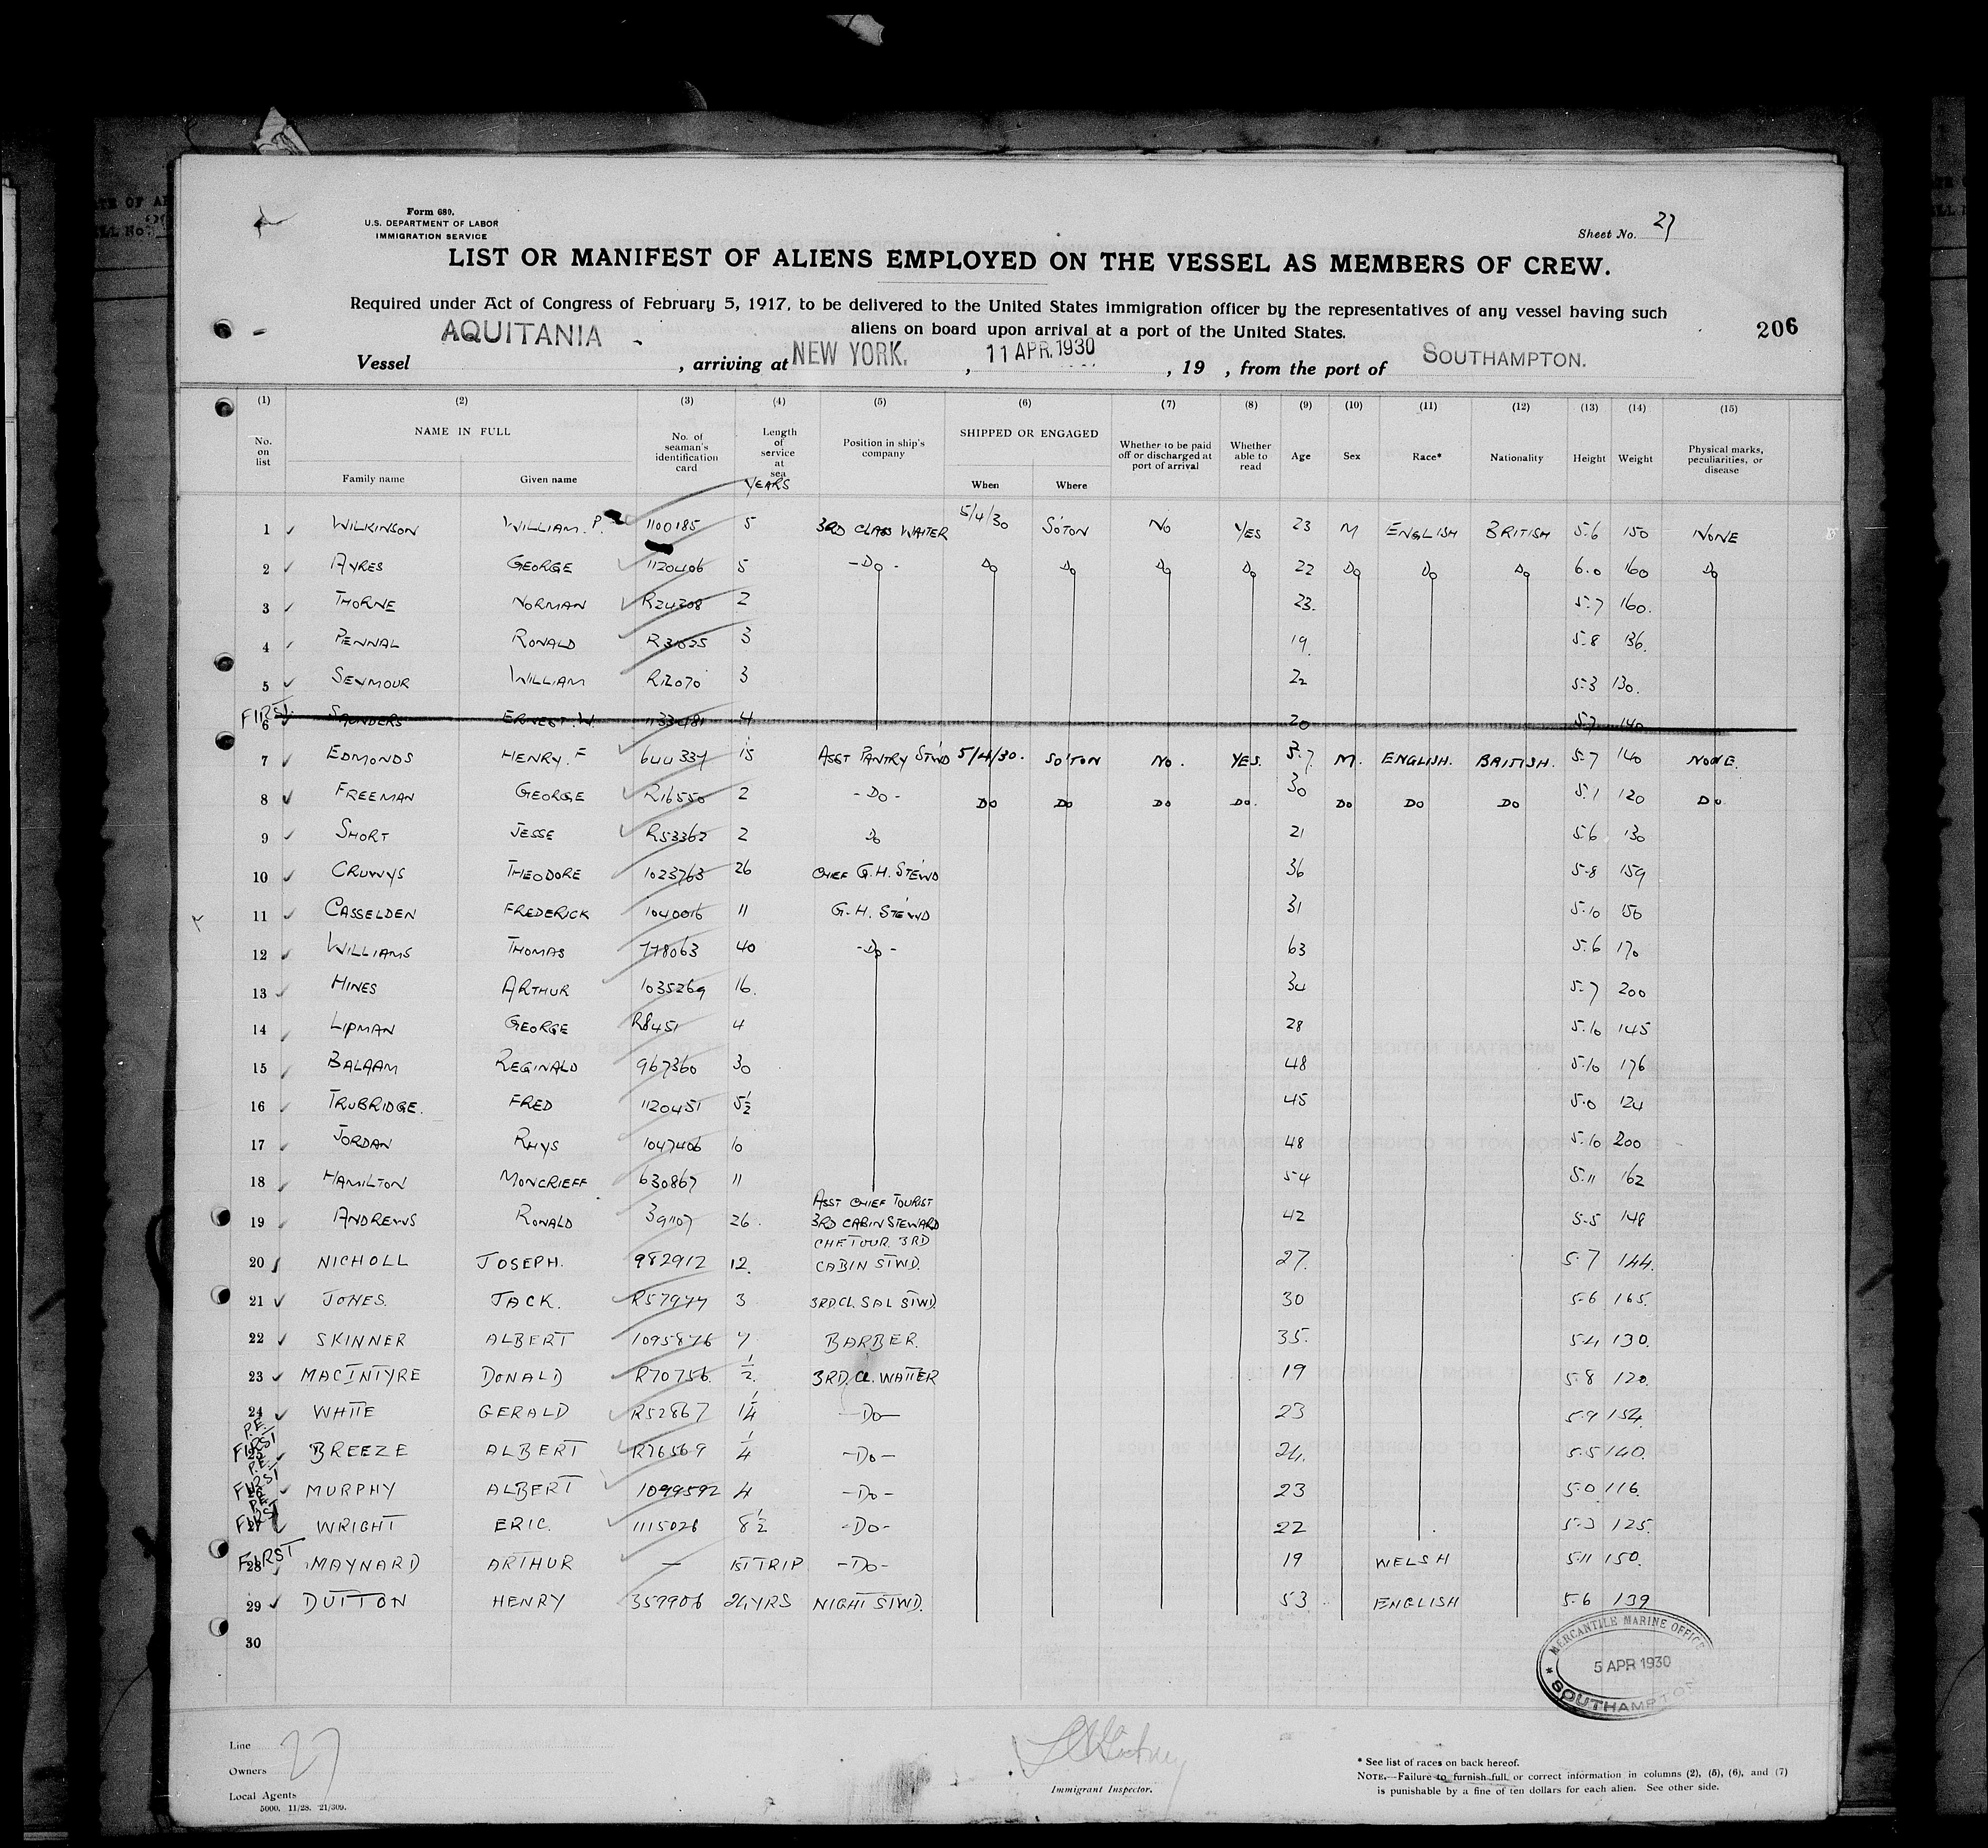 Form 680.
U.S. DEPARTMENT OF LABOR
IMMIGRATION SERVICE
Sheet No. 27
LIST OR MANIFEST OF ALIENS EMPLOYED ON THE VESSEL AS MEMBERS OF CREW.
Required under Act of Congress of February 5, 1917, to be delivered to the United States immigration officer by the representatives of any vessel having such
aliens on board upon arrival at a port of the United States.
206
Vessel AQUITANIA, arriving at NEW YORK., 11 APR. 1930, 19 , from the port of SOUTHAMPTON.
(1) (2) (3) (4) (5) (6) (7) (8) (9) (10) (11) (12) (13) (14) (15)
No. on list NAME IN FULL Family name Given name No. of seaman's identification card Length of service at sea YEARS Position in ship's company SHIPPED OR ENGAGED When Where Whether to be paid off or discharged at port of arrival Whether able to read Age Sex Race* Nationality Height Weight Physical marks, peculiarities, or disease
1 WILKINSON WILLIAM. P. 1100185 5 3RD CLASS WAITER 5/4/30 SO'TON NO YES 23 M ENGLISH BRITISH 5.6 150 NONE
2 AYRES GEORGE 1120406 5 -Do- Do Do Do Do 22 Do Do Do 6.0 160 Do
3 THORNE NORMAN R24208 2 23. 5.7 160.
4 PENNAL RONALD R31525 3 19 5.8 136.
5 SEYMOUR WILLIAM R12070 3 22 5.3 130.
FIRST 6 SAUNDERS ERNEST. W. 1133481 4 20 5.7 140
7 EDMONDS HENRY. F 644337 15 ASST PANTRY STWD 5/4/30. SO'TON NO. YES. 37 M. ENGLISH. BRITISH. 5.7 140 NONE.
8 FREEMAN GEORGE R16550 2 -Do- Do Do Do Do. 30 Do Do Do 5.1 120 Do
9 SHORT JESSE R53362 2 Do 21 5.6 130
10 CRUWYS THEODORE 1023763 26 CHIEF G.H. STEWD 36 5-8 159
11 CASSELDEN FREDERICK 1040016 11 G.H. STEWD 31 5.10 150
12 WILLIAMS THOMAS 778063 40 -Do- 63 5.6 170
13 HINES ARTHUR 1035269 16. 34 5-7 200
14 LIPMAN GEORGE R8451 4 28 5.10 145
15 BALAAM REGINALD 967360 30 48 5.10 176
16 TRUBRIDGE. FRED 1120451 5½ 45 5.0 124
17 JORDAN RHYS 1047406 10 48 5.10 200
18 HAMILTON MONCRIEFF 630867 11 54 5.11 162
19 ANDREWS RONALD 39107 26. ASST CHIEF TOURIST 3RD CABIN STEWARD 42 5-5 148
20 NICHOLL JOSEPH. 982912 12. CH E TOUR 3RD CABIN STWD. 27. 5.7 144.
21 JONES. JACK. R57977 3 3RD.CL. SAL STWD. 30 5.6 165.
22 SKINNER ALBERT 1095876 7 BARBER. 35. 5.4 130.
23 MACINTYRE DONALD R70756. ½. 3RD. CL. WAITER 19 5.8 120.
24 WHITE GERALD R52867 1¼ -Do- 23 5.9 154.
P.E. FIRST 25 BREEZE ALBERT R76569 ¼ -Do- 24. 5.5 140.
FIRST 26 MURPHY ALBERT 1099592 4 -Do- 23 5.0 116.
FIRST 27 WRIGHT ERIC. 1115026 8½ -Do- 22 5.3 125.
FIRST 28 MAYNARD ARTHUR — 1ST TRIP -Do- 19 WELSH 5.11 150.
29 DUTTON HENRY 359906 24 YRS NIGHT STWD. 53 ENGLISH 5.6 139
30
MERCANTILE MARINE OFFICE
5 APR 1930
SOUTHAMPTON
Line 27
Owners
Local Agents
5000. 11/28. 21/309.
Immigrant Inspector.
* See list of races on back hereof.
NOTE.—Failure to furnish full or correct information in columns (2), (5), (6), and (7)
is punishable by a fine of ten dollars for each alien. See other side.